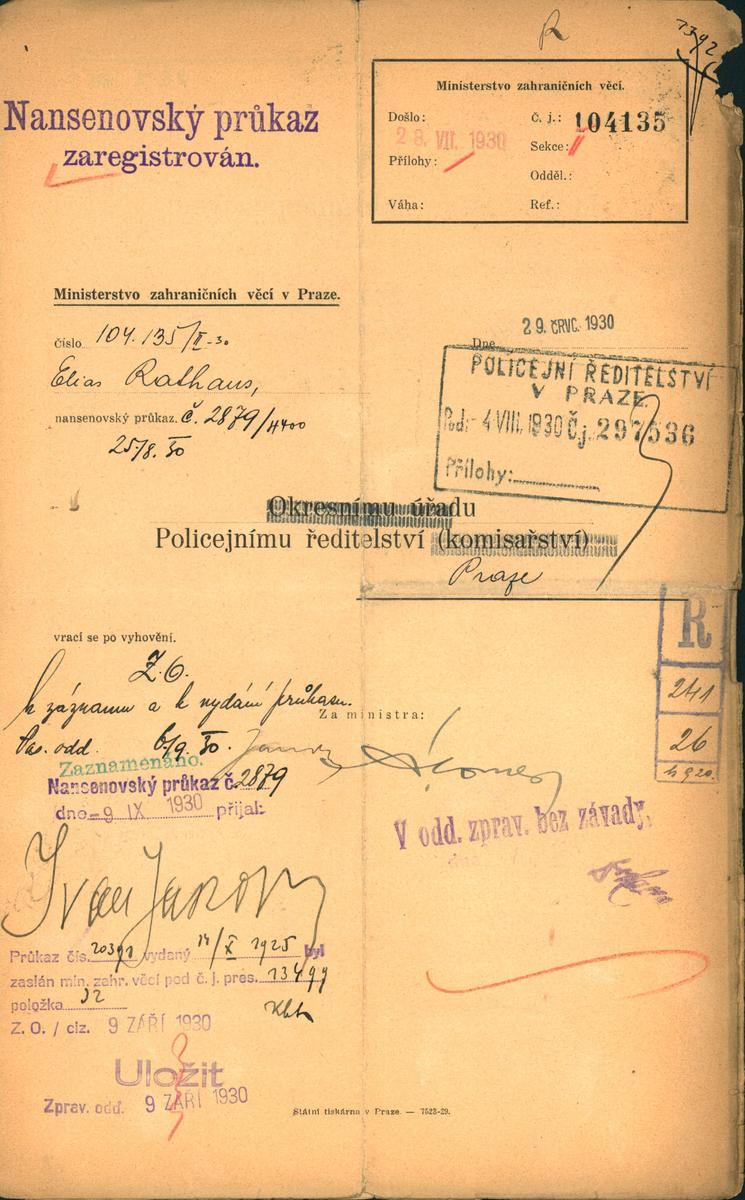 R
Nansenovský průkaz
zaregistrován.
Ministerstvo zahraničních věcí.
Došlo:
28. VII. 1930
Přílohy:
Váha:
Č. j.: 104135
Sekce: II
Odděl.:
Ref.:
Ministerstvo zahraničních věcí v Praze.
číslo 104.135/II-30
Elias Rathaus,
nansenovský průkaz. č. 2879/4400
25/8. 30
Dne 29. ČRVC. 1930
POLICEJNÍ ŘEDITELSTVÍ
V PRAZE
Pod: - 4 VIII. 1930 Č.j. 297536
Přílohy:
Okresnímu úřadu
Policejnímu ředitelství (komisařství)
Praze
vrací se po vyhovění.
Z.O.
k záznamu a k vydání průkazu.
Pas. odd. 6/9. 30.
Za ministra:
Zaznamenáno.
Nansenovský průkaz č. 2879
dne - 9 IX 1930 přijal:
R
241
26
V odd. zprav. bez závady,
Průkaz čís. 20391 vydaný 14/X 1925 byl
zaslán min. zahr. věcí pod č. j. pres. 13499
položka 32
Z. O. / ciz. 9 ZÁŘÍ 1930
Uložit
Zprav. odd. 9 ZÁŘÍ 1930
Státní tiskárna v Praze. — 7523-29.